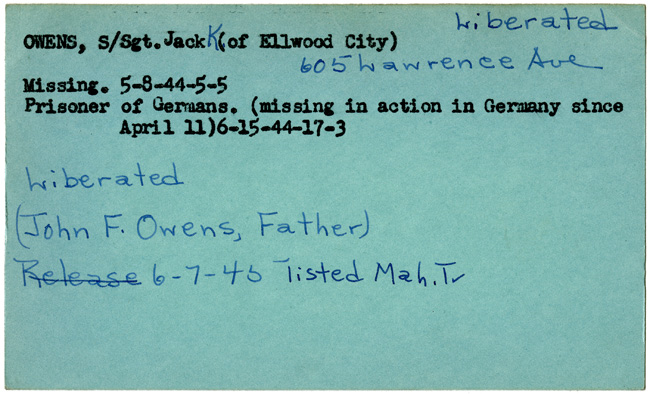 Liberated
OWENS, S/Sgt. Jack K (of Ellwood City)
605 Lawrence Ave
Missing. 5-8-44-5-5
Prisoner of Germans. (missing in action in Germany since
April 11)6-15-44-17-3
Liberated
(John F. Owens, Father)
Release 6-7-45 Listed Mah. Tv